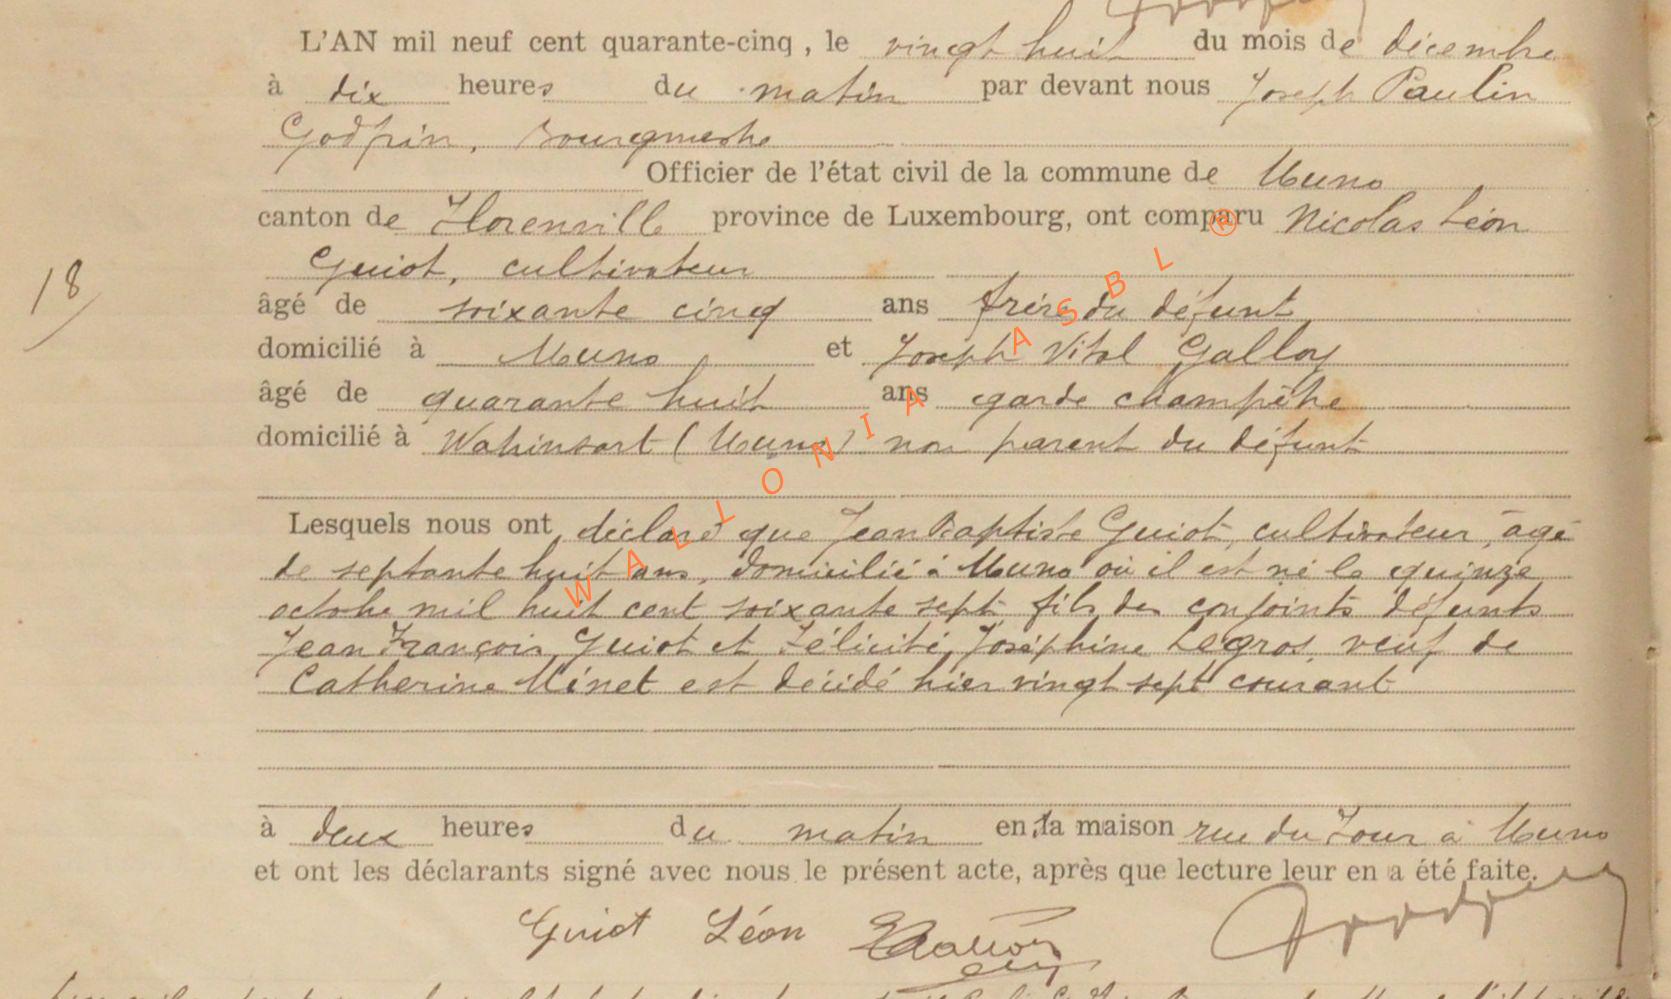 L'AN mil neuf cent quarante-cinq, le vingt huit du mois de décembre
à dix heures du matin par devant nous Joseph Paulin
Godfrin, Bourgmestre
Officier de l'état civil de la commune de Muno
canton de Florenville province de Luxembourg, ont comparu Nicolas Léon
Guiot, cultivateur
18
âgé de soixante cinq ans frère du défunt
domicilié à Muno et Joseph Vital Galloy
âgé de quarante huit ans garde champêtre
domicilié à Wahinsart (Muno) non parent du défunt
Lesquels nous ont déclaré que Jean Baptiste Guiot, cultivateur, âgé
de septante huit ans, domicilié à Muno où il est né le quinze
octobre mil huit cent soixante sept fils des conjoints défunts
Jean François Guiot et Félicité, Joséphine Legros, veuf de
Catherine Minet est décédé hier vingt sept courant
à deux heures du matin en la maison rue du Four à Muno
et ont les déclarants signé avec nous le présent acte, après que lecture leur en a été faite.
Guiot Léon
WALLONIA ASBL ®